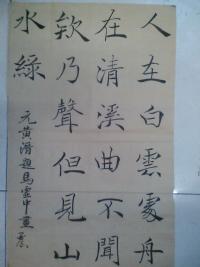 人在白雲處舟
在清溪曲不聞
欸乃聲但見山
水綠
元黃溍題馬虛中畫意